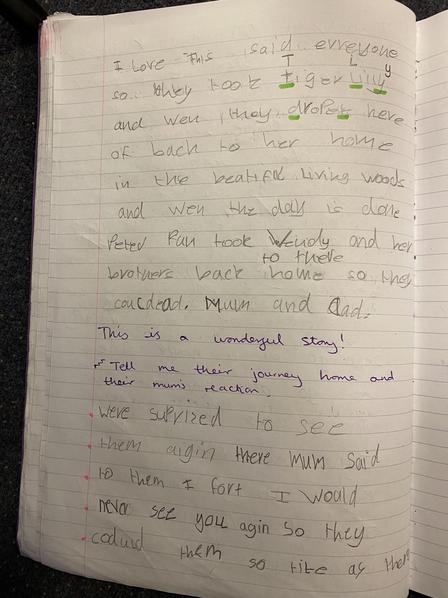 I love This said erreyone
so they took tiger Lily
T L y
and wen they droped here
of bach to her home
in the beatiful living woods
and wen the day is done
Peter Pan took Wendy and her
to there
brothers back home so they
Mum and Dad.
This is a wonderful story!
Tell me their journey home and
their mum's reaction.
Were suprized to see
them aigin there Mum Said
to them I fort I Would
never see you agin So they
them so tite as them